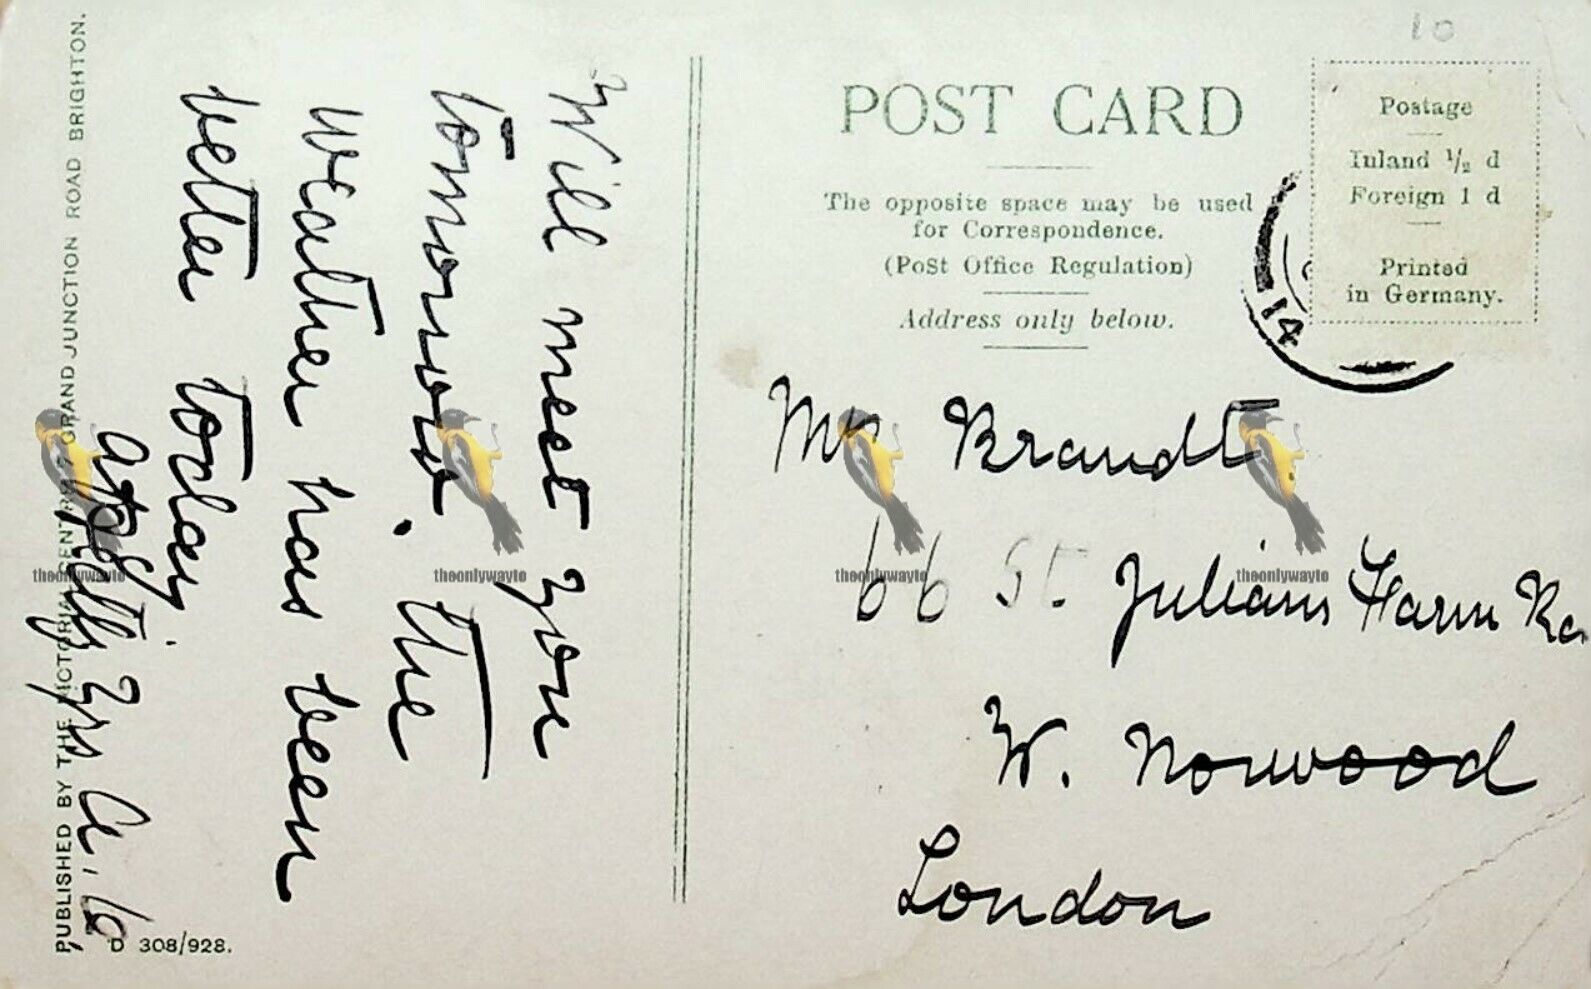 Will meet you
tomorrow. The
weather has been
better today.
PUBLISHED BY THE VICTORIA CENTRAL, GRAND JUNCTION ROAD BRIGHTON.
D 308/928.
POST CARD
The opposite space may be used
for Correspondence.
(Post Office Regulation)
Address only below.
10
Postage
Inland 1/2 d
Foreign 1 d
Printed
in Germany.
14
Brandt
66 St. Julians Farm
W. Norwood
London
theonlywayto
theonlywayto
theonlywayto
theonlywayto